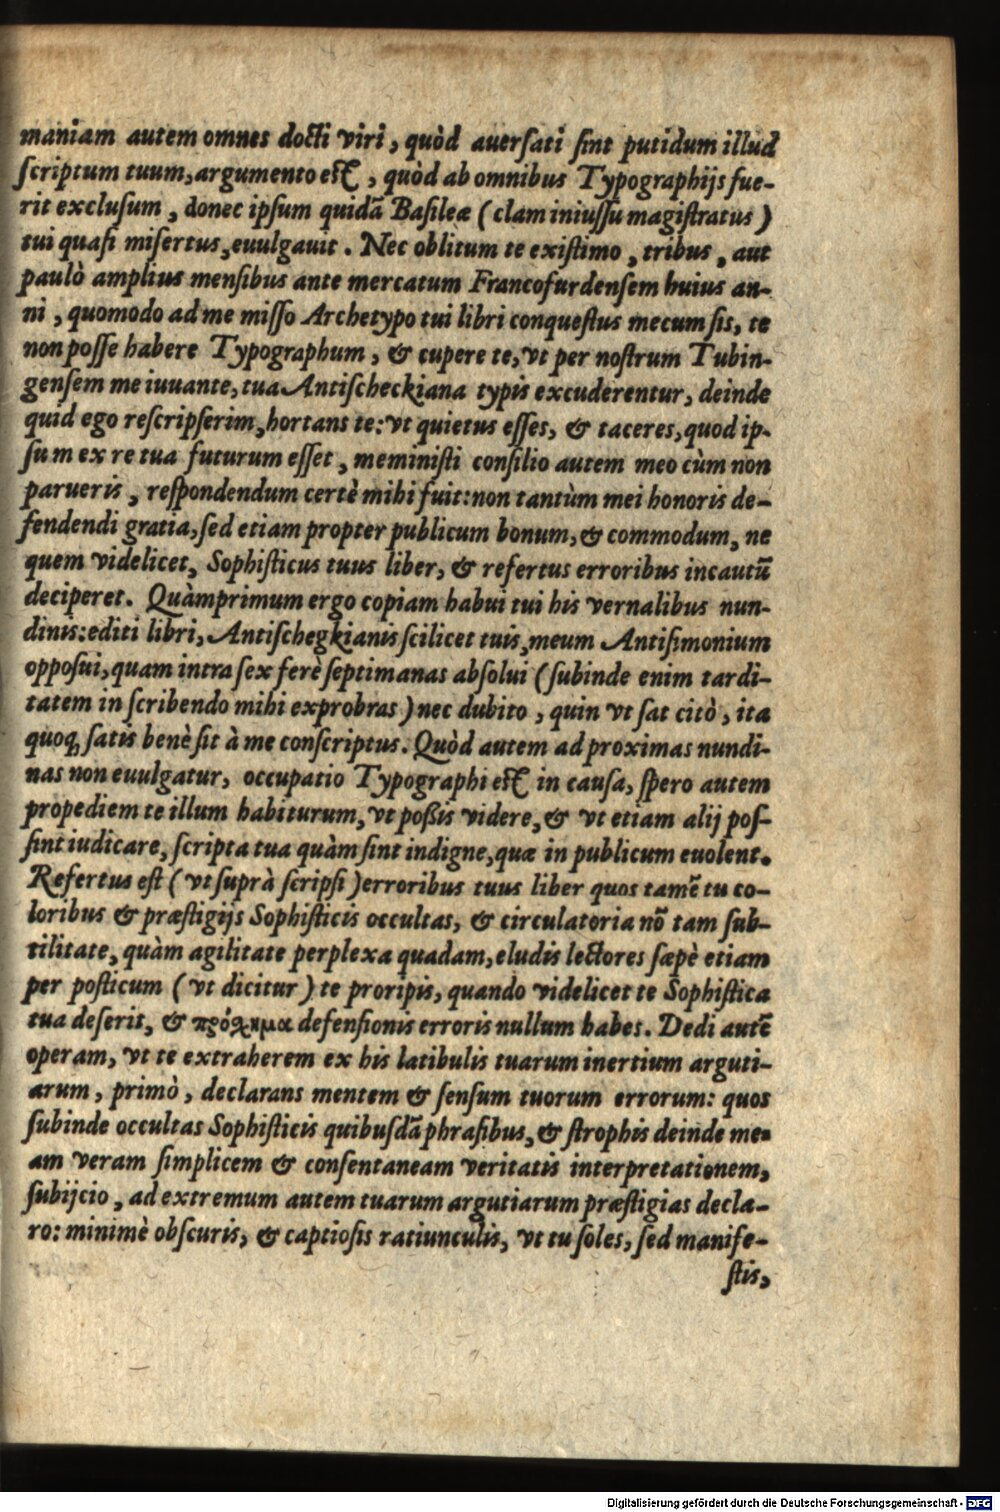 maniam autem omnes docti viri, quòd auerſati ſint putidum illud
ſcriptum tuum, argumento eſt, quòd ab omnibus Typographijs fue-
rit excluſum, donec ipſum quidā Baſileæ (clam iniuſſu magiſtratus)
tui quaſi miſertus, euulgauit. Nec oblitum te exiſtimo, tribus, aut
paulò amplius menſibus ante mercatum Francofurdenſem huius an-
ni, quomodo ad me miſſo Archetypo tui libri conqueſtus mecum ſis, te
non poſſe habere Typographum, & cupere te, vt per noſtrum Tubin-
genſem me iuuante, tua Antiſcheckiana typis excuderentur, deinde
quid ego reſcripſerim, hortans te: vt quietus eſſes, & taceres, quod ip-
ſum ex re tua futurum eſſet, meminiſti conſilio autem meo cùm non
parueris, reſpondendum certè mihi fuit: non tantùm mei honoris de-
fendendi gratia, ſed etiam propter publicum bonum, & commodum, ne
quem videlicet, Sophiſticus tuus liber, & refertus erroribus incautū
deciperet. Quàmprimum ergo copiam habui tui his vernalibus nun-
dinis: editi libri, Antiſchegkianis ſcilicet tuis, meum Antiſimonium
oppoſui, quam intra ſex ferè ſeptimanas abſolui (ſubinde enim tardi-
tatem in ſcribendo mihi exprobras) nec dubito, quin vt ſat citò, ita
quoq; ſatis benè ſit à me conſcriptus. Quòd autem ad proximas nundi-
nas non euulgatur, occupatio Typographi eſt in cauſa, ſpero autem
propediem te illum habiturum, vt poßis videre, & vt etiam alij poſ-
ſint iudicare, ſcripta tua quàm ſint indigne, quæ in publicum euolent.
Refertus eſt (vt ſuprà ſcripſi) erroribus tuus liber quos tamē tu co-
loribus & præſtigijs Sophiſticis occultas, & circulatoria nō tam ſub-
tilitate, quàm agilitate perplexa quadam, eludis lectores ſæpè etiam
per poſticum (vt dicitur) te proripis, quando videlicet te Sophiſtica
tua deſerit, & πρόχημα defenſionis erroris nullum habes. Dedi autē
operam, vt te extraherem ex his latibulis tuarum inertium arguti-
arum, primò, declarans mentem & ſenſum tuorum errorum: quos
ſubinde occultas Sophiſticis quibuſdā phraſibus, & ſtrophis deinde me-
am veram ſimplicem & conſentaneam veritatis interpretationem,
ſubijcio, ad extremum autem tuarum argutiarum præſtigias decla-
ro: minimè obſcuris, & captioſis ratiunculis, vt tu ſoles, ſed manife-
ſtis,
Digitalisierung gefördert durch die Deutsche Forschungsgemeinschaft - DFG